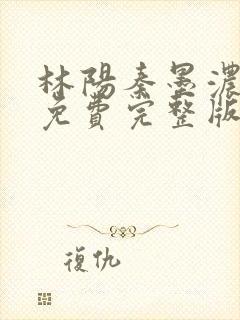 林陽秦墨濃
免費完整版
復仇